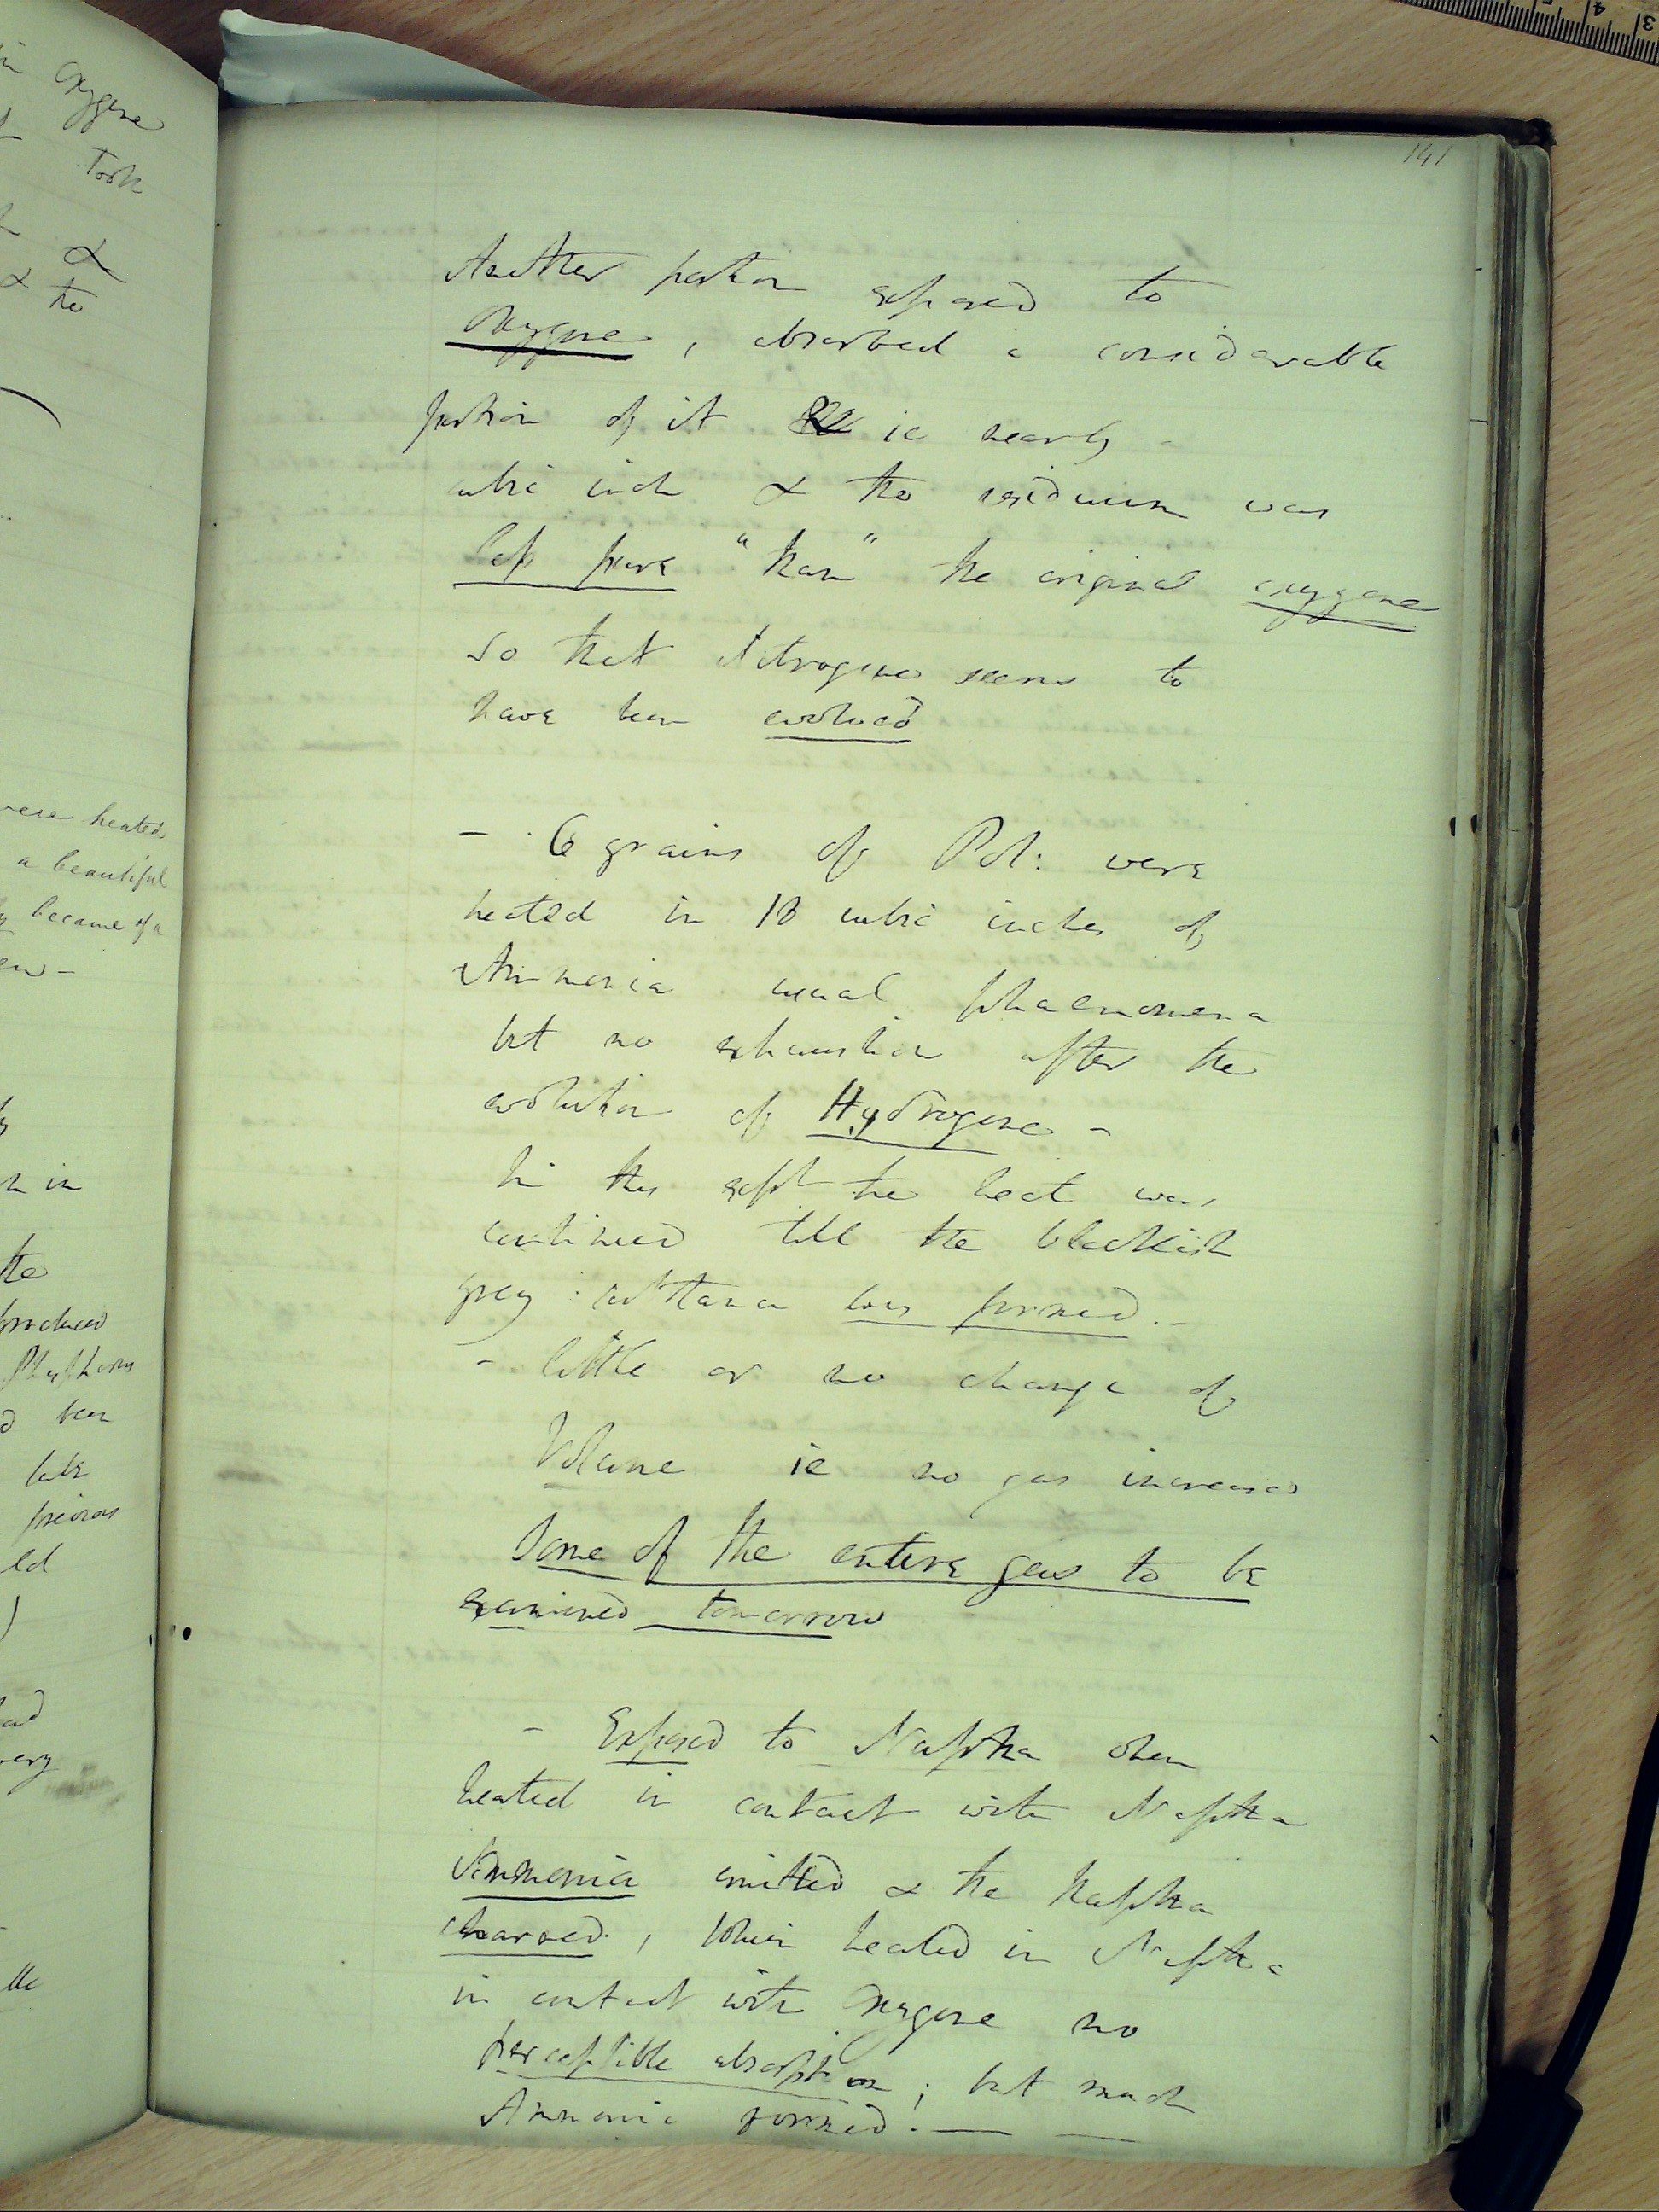 in oxygene
Took
&
& the
were heated
a beautiful
became of a
in
the
produced
been
ld
141
Another portion exposed to
Oxygene, absorbed a considerable
portion of it ie nearly a
cubic inch & the residuum was
less pure "than" the original oxygene
So that Nitrogene seems to
have been evolved
- 6 grains of Pot: were
heated in 18 cubic inches of
Ammonia usual phaenomena
but no exhaustion after the
evolution of Hydrogene -
In this expt the heat was
continued till the blackish
grey substance was formed. -
- little or no change of
Volume ie no gas increased
Some of the entire gas to be
examined tomorrow
- Exposed to Naptha when
heated in contact with Naptha
Ammonia emitted & the Naptha
charred, When heated in Naptha
in contact with oxygene no
perceptible absorption; but much
Ammonia formed. — —
3
4
5